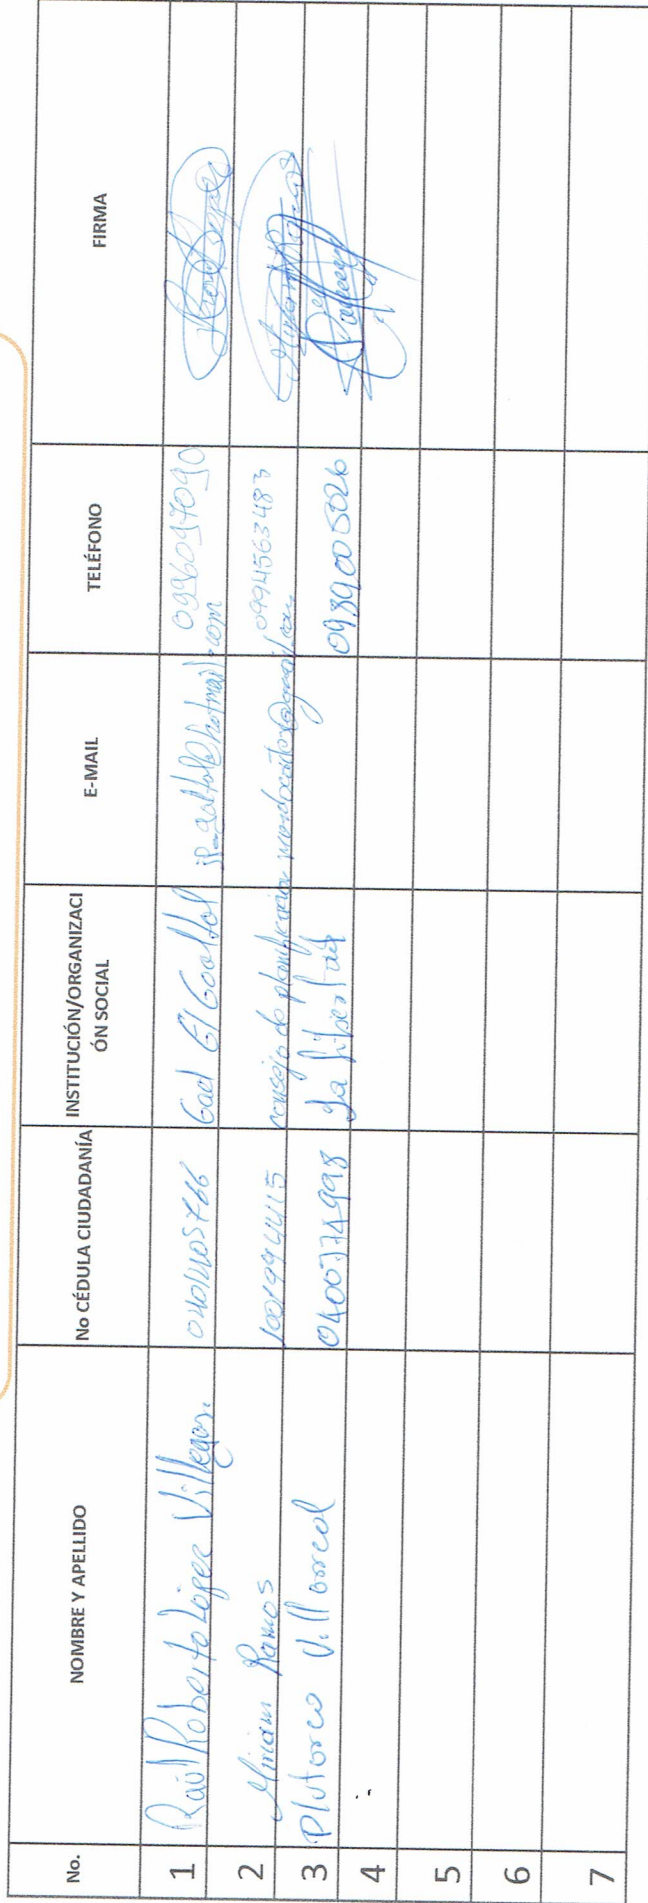 No. NOMBRE Y APELLIDO No CÉDULA CIUDADANÍA INSTITUCIÓN/ORGANIZACI E-MAIL TELÉFONO FIRMA
ÓN SOCIAL
1 Raúl Roberto López Villegas. 0401405766 Gad El Goaltal @hotmail.com 0996097090
2 Miriam Ramos 1001994415 consejo de planificación @gmail.com 0994563483
3 Plutarco Villarreal 0400774998 La Libertad 0989005026
4
5
6
7